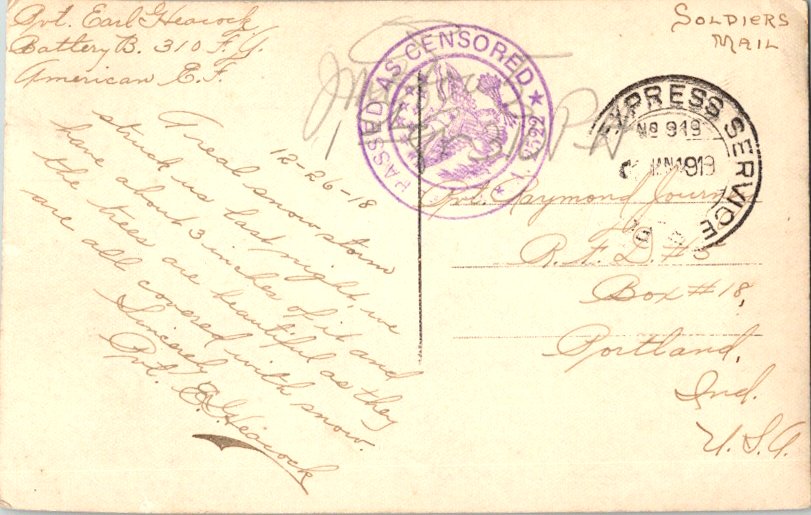 Pvt. Earl G. Heacock
Battery B. 310 F.G.
American E.F.
SOLDIERS
MAIL
PASSED AS CENSORED
EXPRESS SERVICE
No 919
1919
12-26-18
A real snow storm
struck us last night we
have about 3 inches of it and
the trees are beautiful as they
are all covered with snow.
Sincerely
Pvt. E. G. Heacock
Pvt. Raymond
R.F.D. #5
Box #18,
Portland,
Ind.
U.S.A.